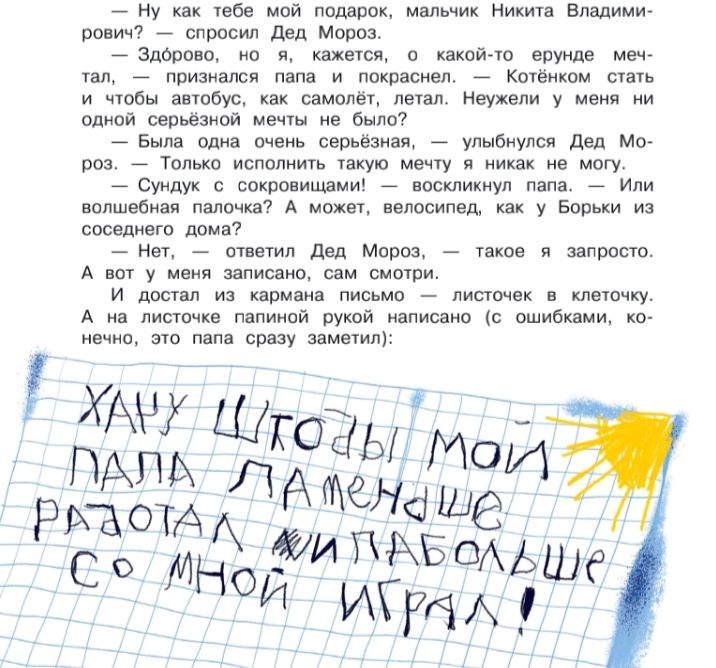 — Ну как тебе мой подарок, мальчик Никита Владими-
рович? — спросил Дед Мороз.
— Здóрово, но я, кажется, о какой-то ерунде меч-
тал, — признался папа и покраснел. — Котёнком стать
и чтобы автобус, как самолёт, летал. Неужели у меня ни
одной серьёзной мечты не было?
— Была одна очень серьёзная, — улыбнулся Дед Мо-
роз. — Только исполнить такую мечту я никак не могу.
— Сундук с сокровищами! — воскликнул папа. — Или
волшебная палочка? А может, велосипед, как у Борьки из
соседнего дома?
— Нет, — ответил Дед Мороз, — такое я запросто.
А вот у меня записано, сам смотри.
И достал из кармана письмо — листочек в клеточку.
А на листочке папиной рукой написано (с ошибками, ко-
нечно, это папа сразу заметил):
ХАЧУ ШТОБЫ МОЙ
ПАПА ПАМЕНЬШЕ
РАБОТАЛ И ПАБОЛЬШЕ
СО МНОЙ ИГРАЛ!